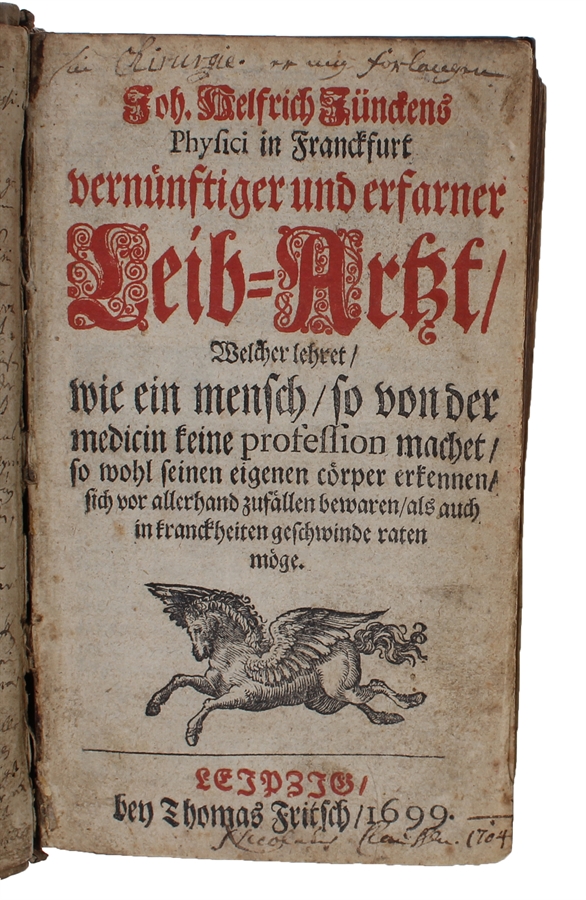 Chirurgie.
Joh. Helfrich Jünckens
Physici in Franckfurt
vernünftiger und erfarner
Leib-Artzt/
Welcher lehret/
wie ein mensch/ so von der
medicin keine profession machet/
so wohl seinen eigenen cörper erkennen/
sich vor allerhand zufällen bewaren/ als auch
in kranckheiten geschwinde raten
möge.
LEIPZIG/
bey Thomas Fritsch/ 1699.
1704